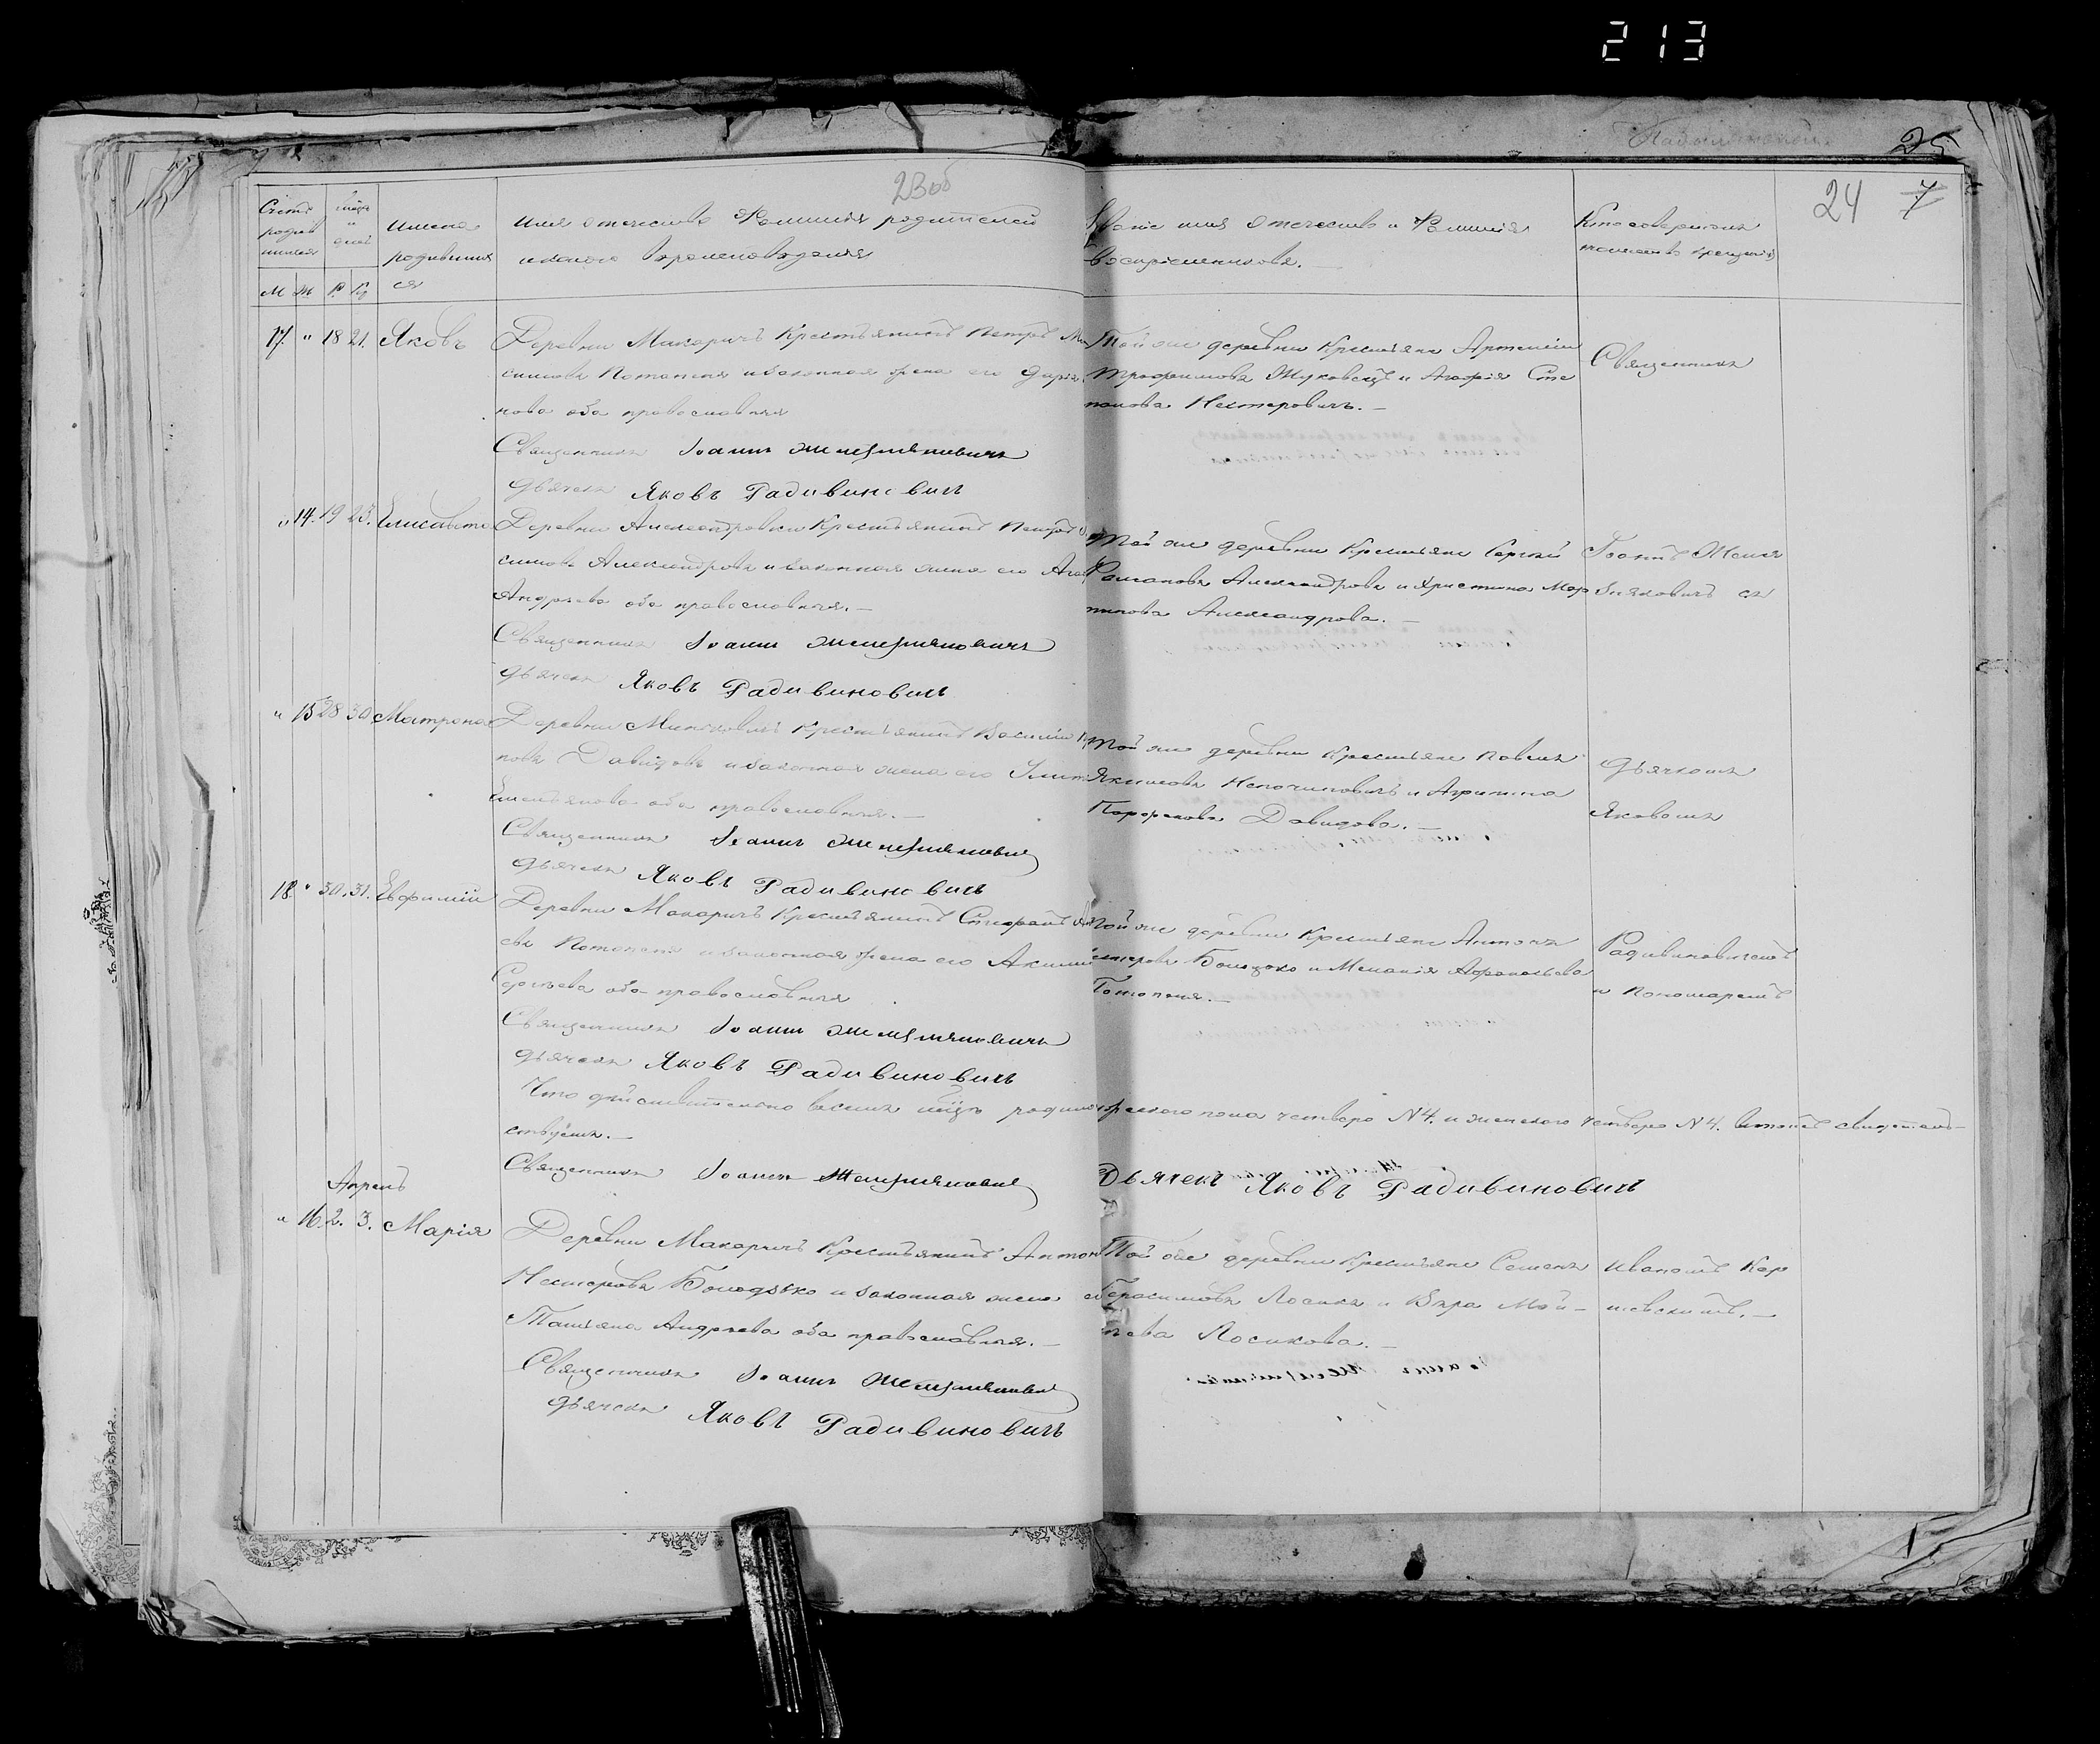 213
25
23об
24 7
Счетъ родившихся
мѣсяцъ и день
Имена родившихся
Имя отечество Фамилия родителей
и какого вѣроисповѣданія
Званіе имя отечество и Фамилія
воспріемниковъ.
Кто совершалъ
таинство крещенія
М Ж Р К
17. " 18 21. Яковъ
Деревни Макаричъ Крестьянинъ Петръ
симовъ Потапеня и законная жена его Дарія
нова оба православныя
Священникъ Іоаннъ Жемерияновичъ
Дьячекъ Яковъ Радивиновичъ
Той же деревни Крестьяне Артемій
Трофимовъ Жуковецъ и Агафія Сте
панова Нестеровичъ.
Священникъ
" 14. 19 23. Елисавета
Деревни Александровки Крестьянинъ Петръ
симовъ Александровъ и законная жена его
Андреева оба православныя.
Священникъ Іоаннъ Жемерияновичъ
Дьячекъ Яковъ Радивиновичъ
Той же деревни Крестьяне Сергѣй
Александровъ и Христина Мар
тинова Александрова.
Іоаннъ
" 15 28 30 Матрона
Деревни Крестьянинъ Василій
повъ Давидовъ и законная жена его
Емельянова оба православныя.
Священникъ Іоаннъ Жемерияновичъ
Дьячекъ Яковъ Радивиновичъ
Той же деревни Крестьяне Павелъ
Якимовъ и Агрипина
Давидова.
Дьячкомъ
Яковомъ
18. " 30. 31. Евфимій
Деревни Макаричъ Крестьянинъ Стефанъ
евъ Потапеня и законная жена его
Сергѣева оба православныя
Священникъ Іоаннъ Жемерияновичъ
Дьячекъ Яковъ Радивиновичъ
Той же деревни Крестьяне Антонъ
Нестеровъ и Меланія
Потапеня.
Радивиновичемъ
и Пономаремъ
Что дѣйствительно въ семъ мѣсяцѣ родилось мужескаго пола четверо N4. и женскаго четверо N4. въ томъ свидѣтель-
ствуемъ.
Священникъ Іоаннъ Жемерияновичъ
Дьячекъ Яковъ Радивиновичъ
Апрель
" 16. 2. 3. Марія
Деревни Макаричъ Крестьянинъ Антонъ
Нестеровъ и законная жена его
Татіана Андреева оба православныя.
Священникъ Іоаннъ Жемерияновичъ
Дьячекъ Яковъ Радивиновичъ
Той же деревни Крестьяне Семенъ
Герасимовъ Лосикъ и Вѣра
Лосикова.
Иваномъ Кар